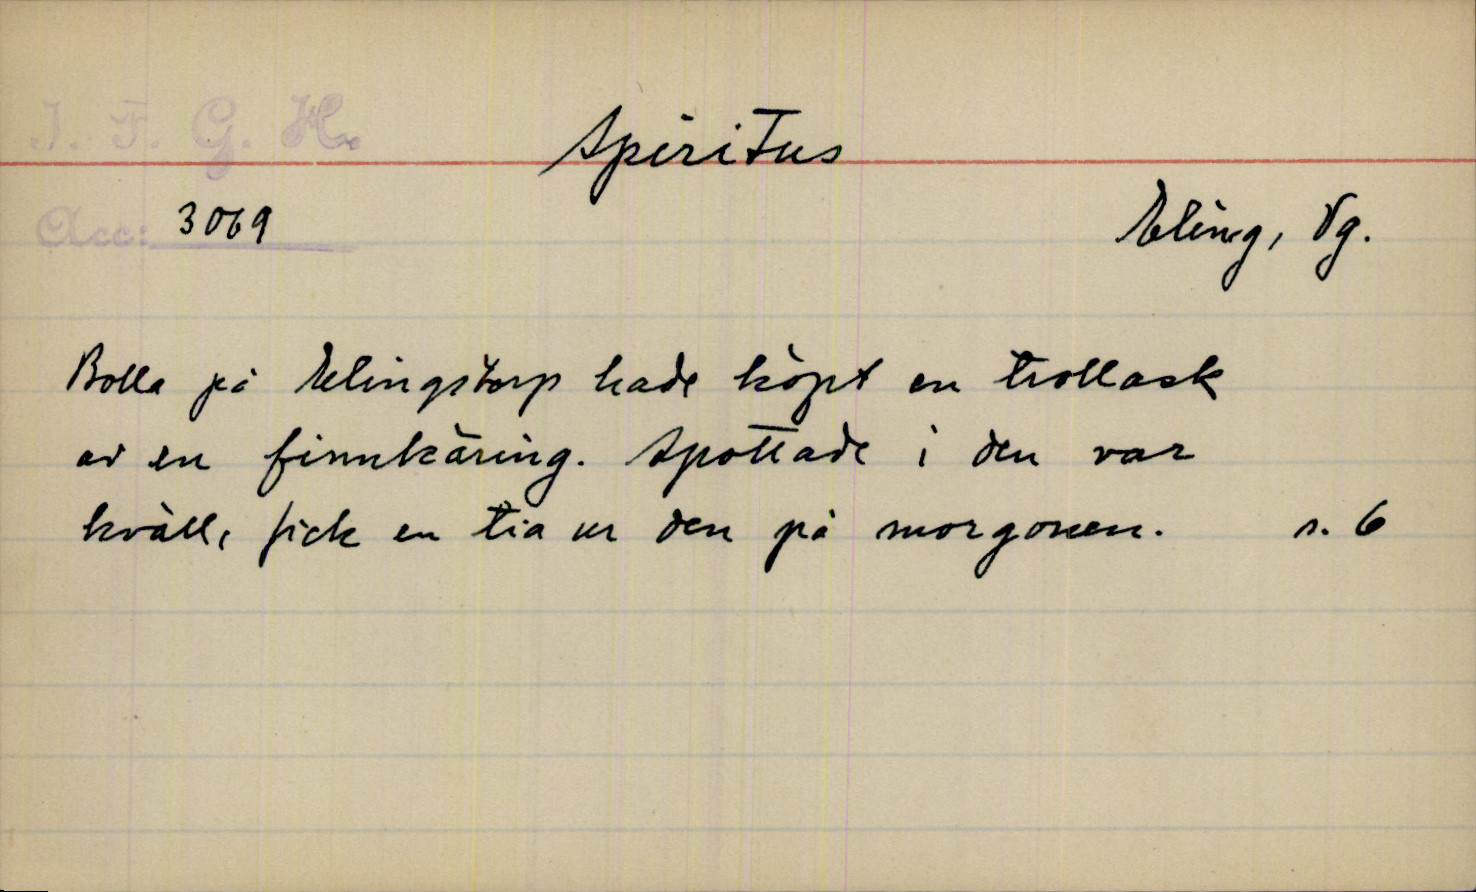 I. F. G. H.
Spiritus
Acc: 3069
Eling, Vg.
Bolla på Elingstorp hade köpt en trollask
av en finnkäring. Spottade i den var
kväll, fick en tia ur den på morgonen. s. 6